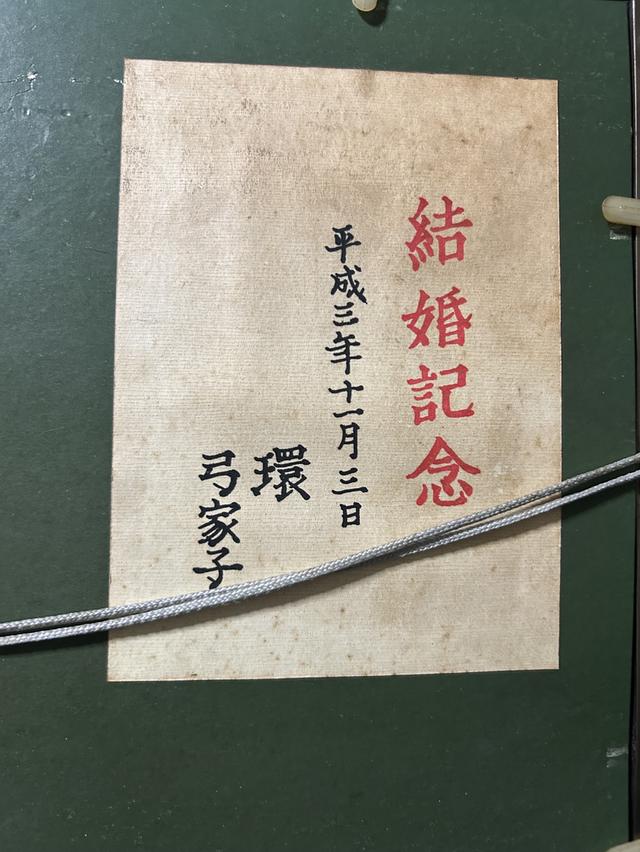 結婚記念
平成三年十一月三日
環
弓家子